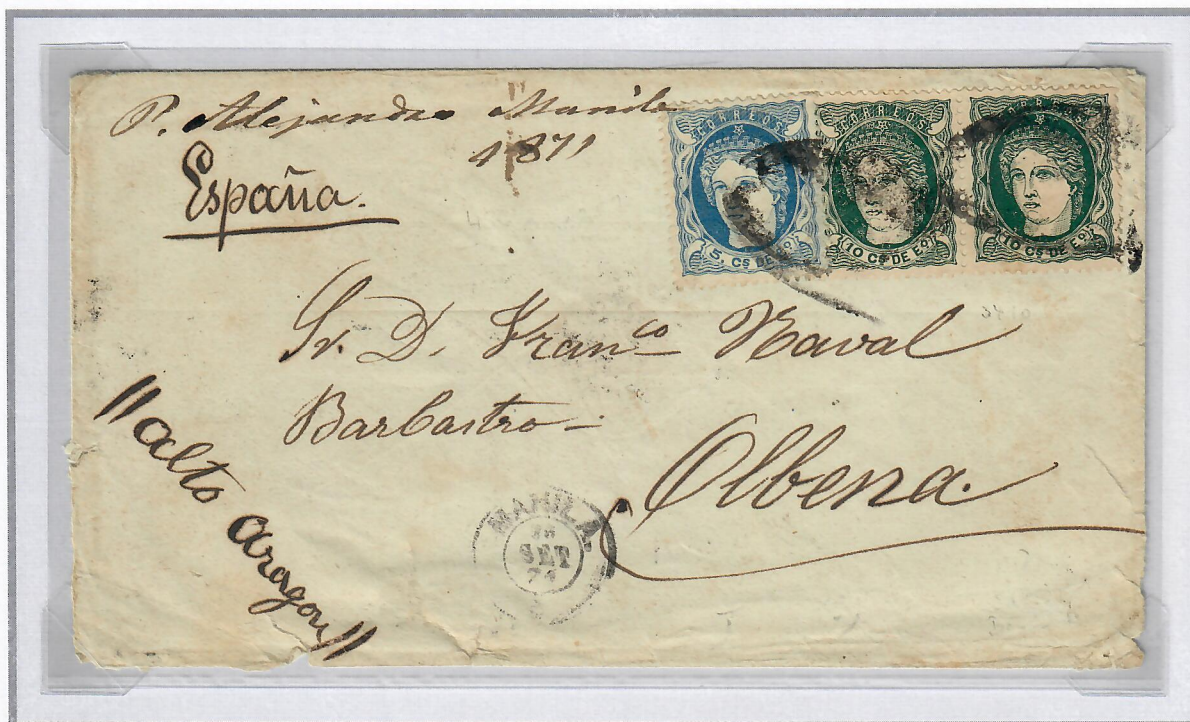 P. Alejandro Manila
1871
España.
CORREOS
CORREOS
CORREOS
5. Cs DE Eo
10 Cs DE Eo
10 Cs DE Eo
Sr. D. Franco Naval
Barbastro -
Olbena.
"alto aragon"
MANILA
SET